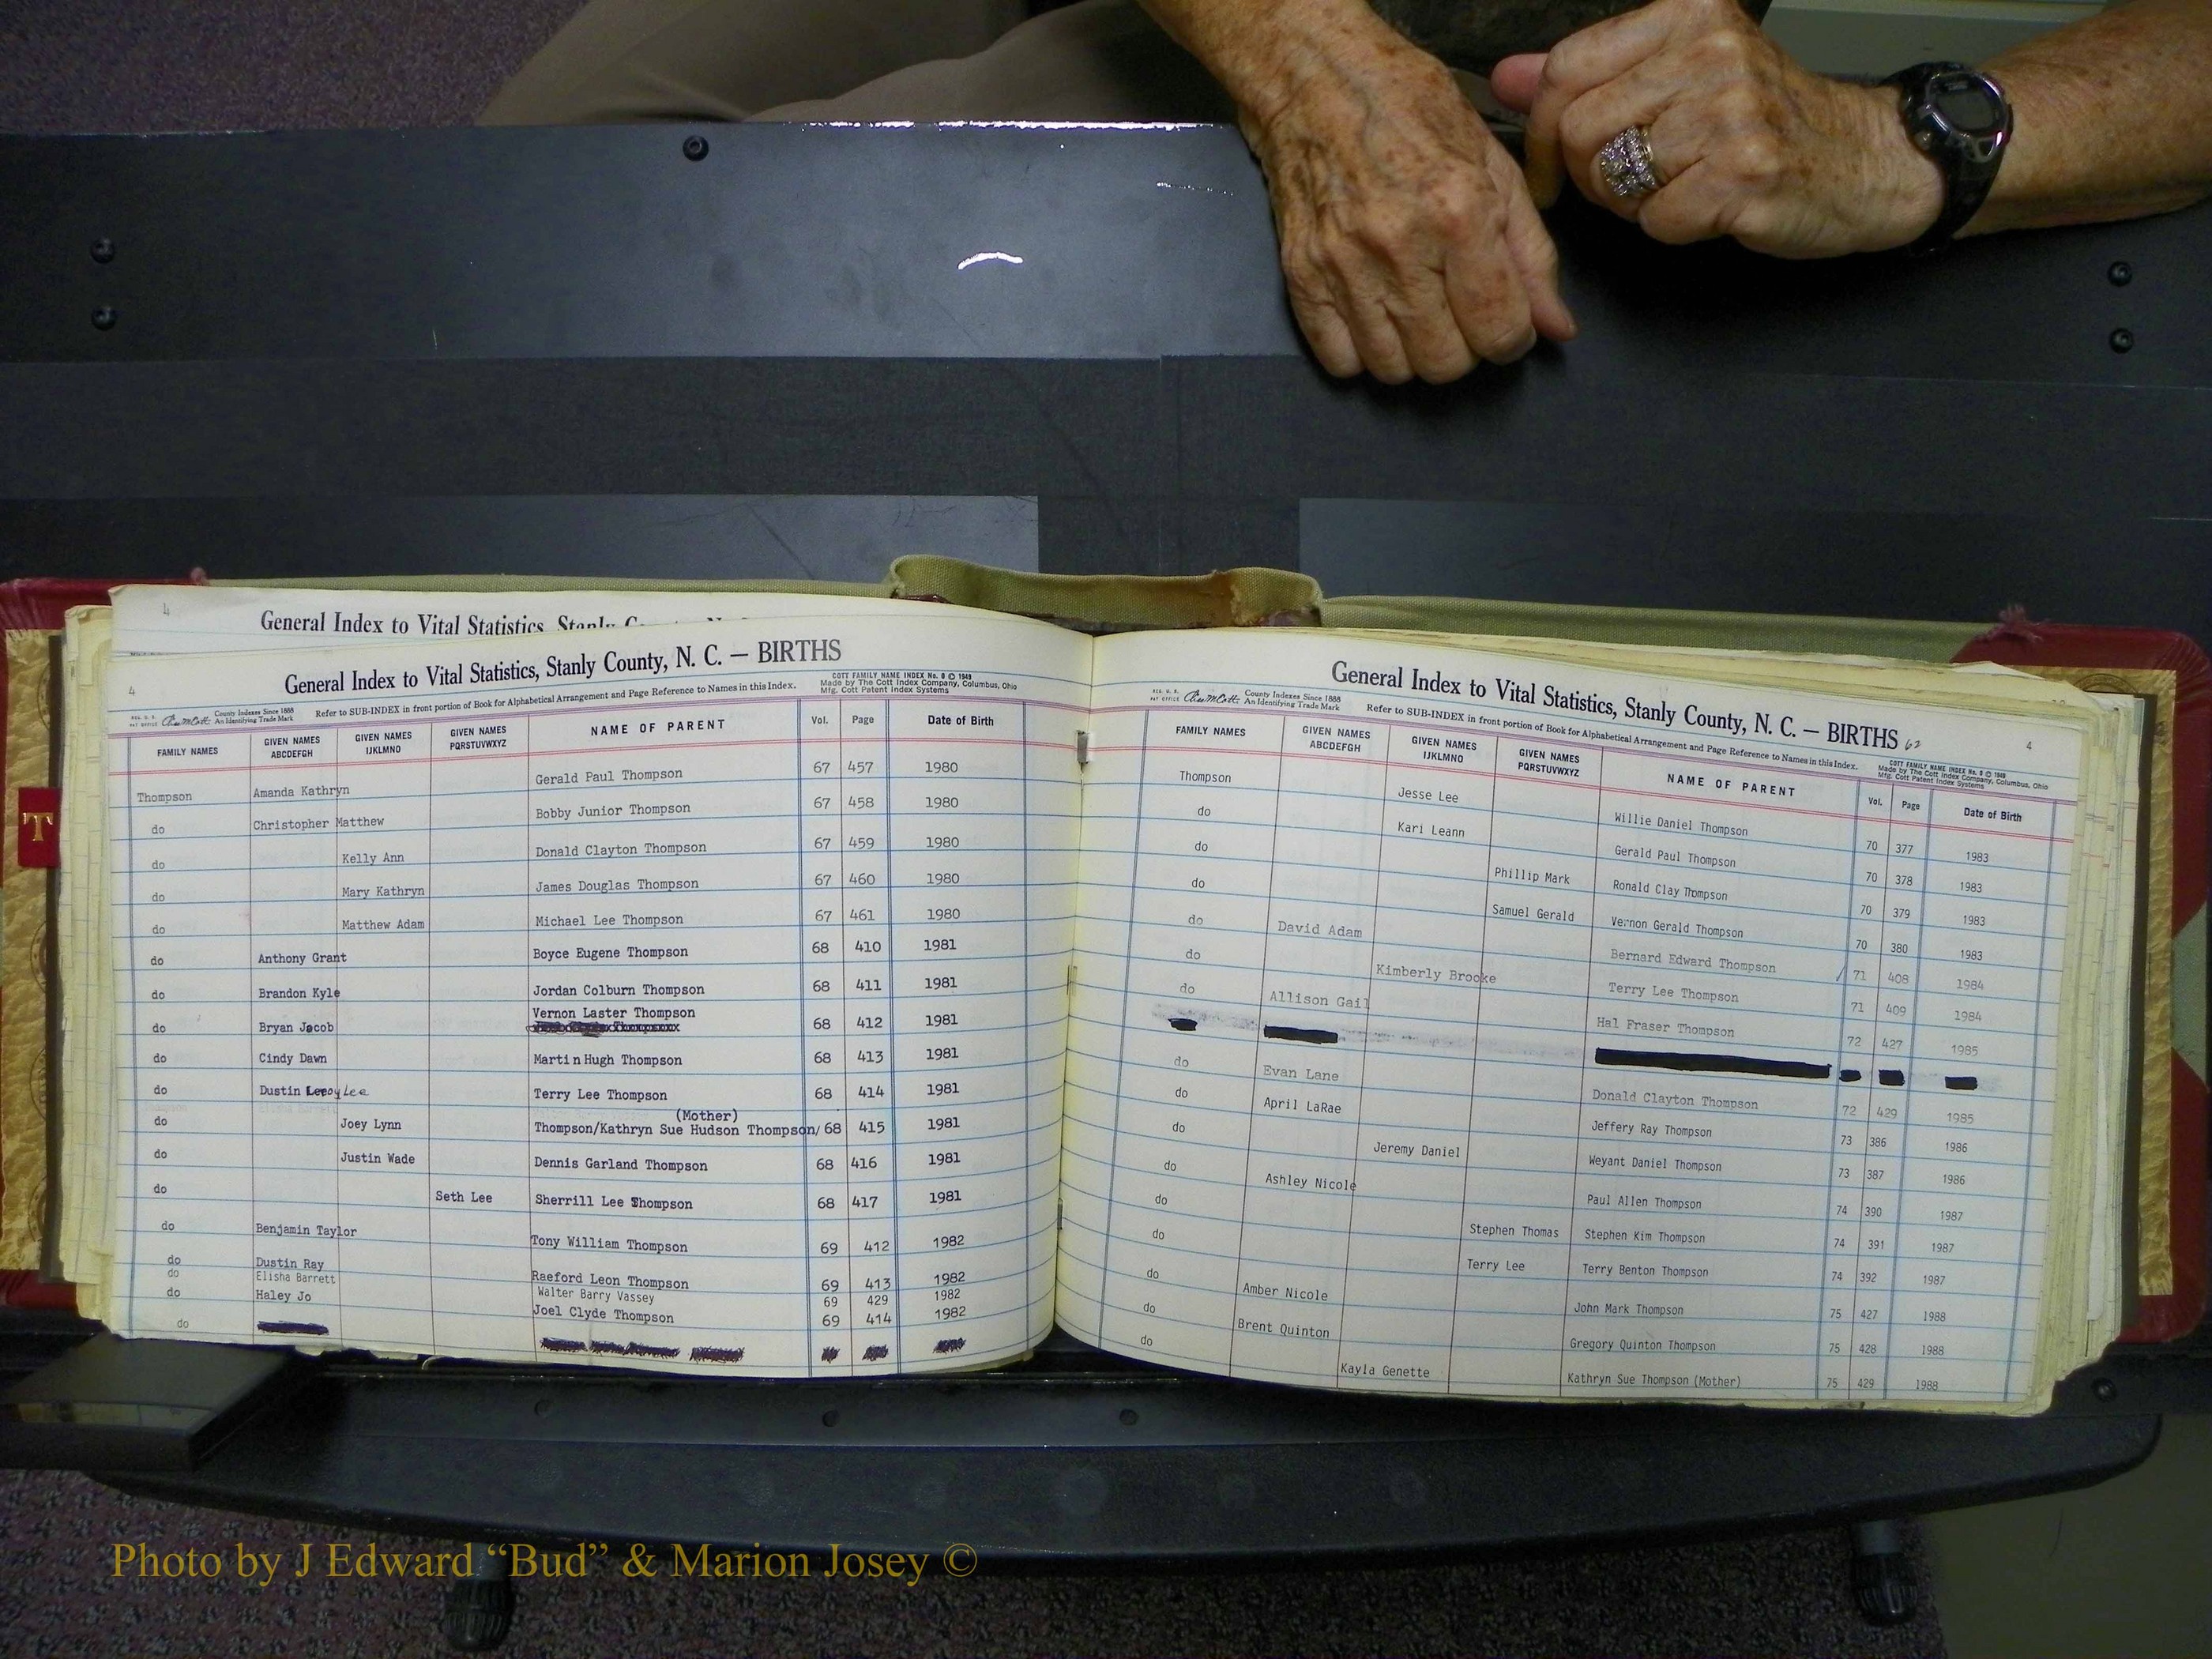 4
General Index to Vital Statistics, Stanly
General Index to Vital Statistics, Stanly County, N. C. — BIRTHS
4
COTT FAMILY NAME INDEX No. 0 © 1949
Made by The Cott Index Company, Columbus, Ohio
Mfg. Cott Patent Index Systems
REG. U. S. PAT OFFICE
County Indexes Since 1888
An Identifying Trade Mark
Refer to SUB-INDEX in front portion of Book for Alphabetical Arrangement and Page Reference to Names in this Index.
FAMILY NAMES GIVEN NAMES ABCDEFGH GIVEN NAMES IJKLMNO GIVEN NAMES PQRSTUVWXYZ NAME OF PARENT Vol. Page Date of Birth
Thompson Amanda Kathryn Gerald Paul Thompson 67 457 1980
do Christopher Matthew Bobby Junior Thompson 67 458 1980
do Kelly Ann Donald Clayton Thompson 67 459 1980
do Mary Kathryn James Douglas Thompson 67 460 1980
do Matthew Adam Michael Lee Thompson 67 461 1980
do Anthony Grant Boyce Eugene Thompson 68 410 1981
do Brandon Kyle Jordan Colburn Thompson 68 411 1981
do Bryan Jacob Vernon Laster Thompson 68 412 1981
do Cindy Dawn Martin Hugh Thompson 68 413 1981
do Dustin Leroy Lee Terry Lee Thompson 68 414 1981
(Mother)
do Joey Lynn Thompson/Kathryn Sue Hudson Thompson/ 68 415 1981
do Justin Wade Dennis Garland Thompson 68 416 1981
do Seth Lee Sherrill Lee Thompson 68 417 1981
do Benjamin Taylor Tony William Thompson 69 412 1982
do Dustin Ray Raeford Leon Thompson 69 413 1982
do Elisha Barrett Walter Barry Vassey 69 429 1982
do Haley Jo Joel Clyde Thompson 69 414 1982
do
General Index to Vital Statistics, Stanly County, N. C. — BIRTHS 62
4
REG. U. S. PAT OFFICE
County Indexes Since 1888
An Identifying Trade Mark
Refer to SUB-INDEX in front portion of Book for Alphabetical Arrangement and Page Reference to Names in this Index.
COTT FAMILY NAME INDEX No. 0 © 1949
Made by The Cott Index Company, Columbus, Ohio
Mfg. Cott Patent Index Systems
FAMILY NAMES GIVEN NAMES ABCDEFGH GIVEN NAMES IJKLMNO GIVEN NAMES PQRSTUVWXYZ NAME OF PARENT Vol. Page Date of Birth
Thompson Jesse Lee Willie Daniel Thompson 70 377 1983
do Kari Leann Gerald Paul Thompson 70 378 1983
do Phillip Mark Ronald Clay Thompson 70 379 1983
do Samuel Gerald Vernon Gerald Thompson 70 380 1983
do David Adam Bernard Edward Thompson 71 408 1984
do Kimberly Brooke Terry Lee Thompson 71 409 1984
do Allison Gail Hal Fraser Thompson 72 427 1985
do Evan Lane Donald Clayton Thompson 72 429 1985
do April LaRae Jeffery Ray Thompson 73 386 1986
do Jeremy Daniel Weyant Daniel Thompson 73 387 1986
do Ashley Nicole Paul Allen Thompson 74 390 1987
do Stephen Thomas Stephen Kim Thompson 74 391 1987
do Terry Lee Terry Benton Thompson 74 392 1987
do Amber Nicole John Mark Thompson 75 427 1988
do Brent Quinton Gregory Quinton Thompson 75 428 1988
do Kayla Genette Kathryn Sue Thompson (Mother) 75 429 1988
T
Photo by J Edward “Bud” & Marion Josey ©